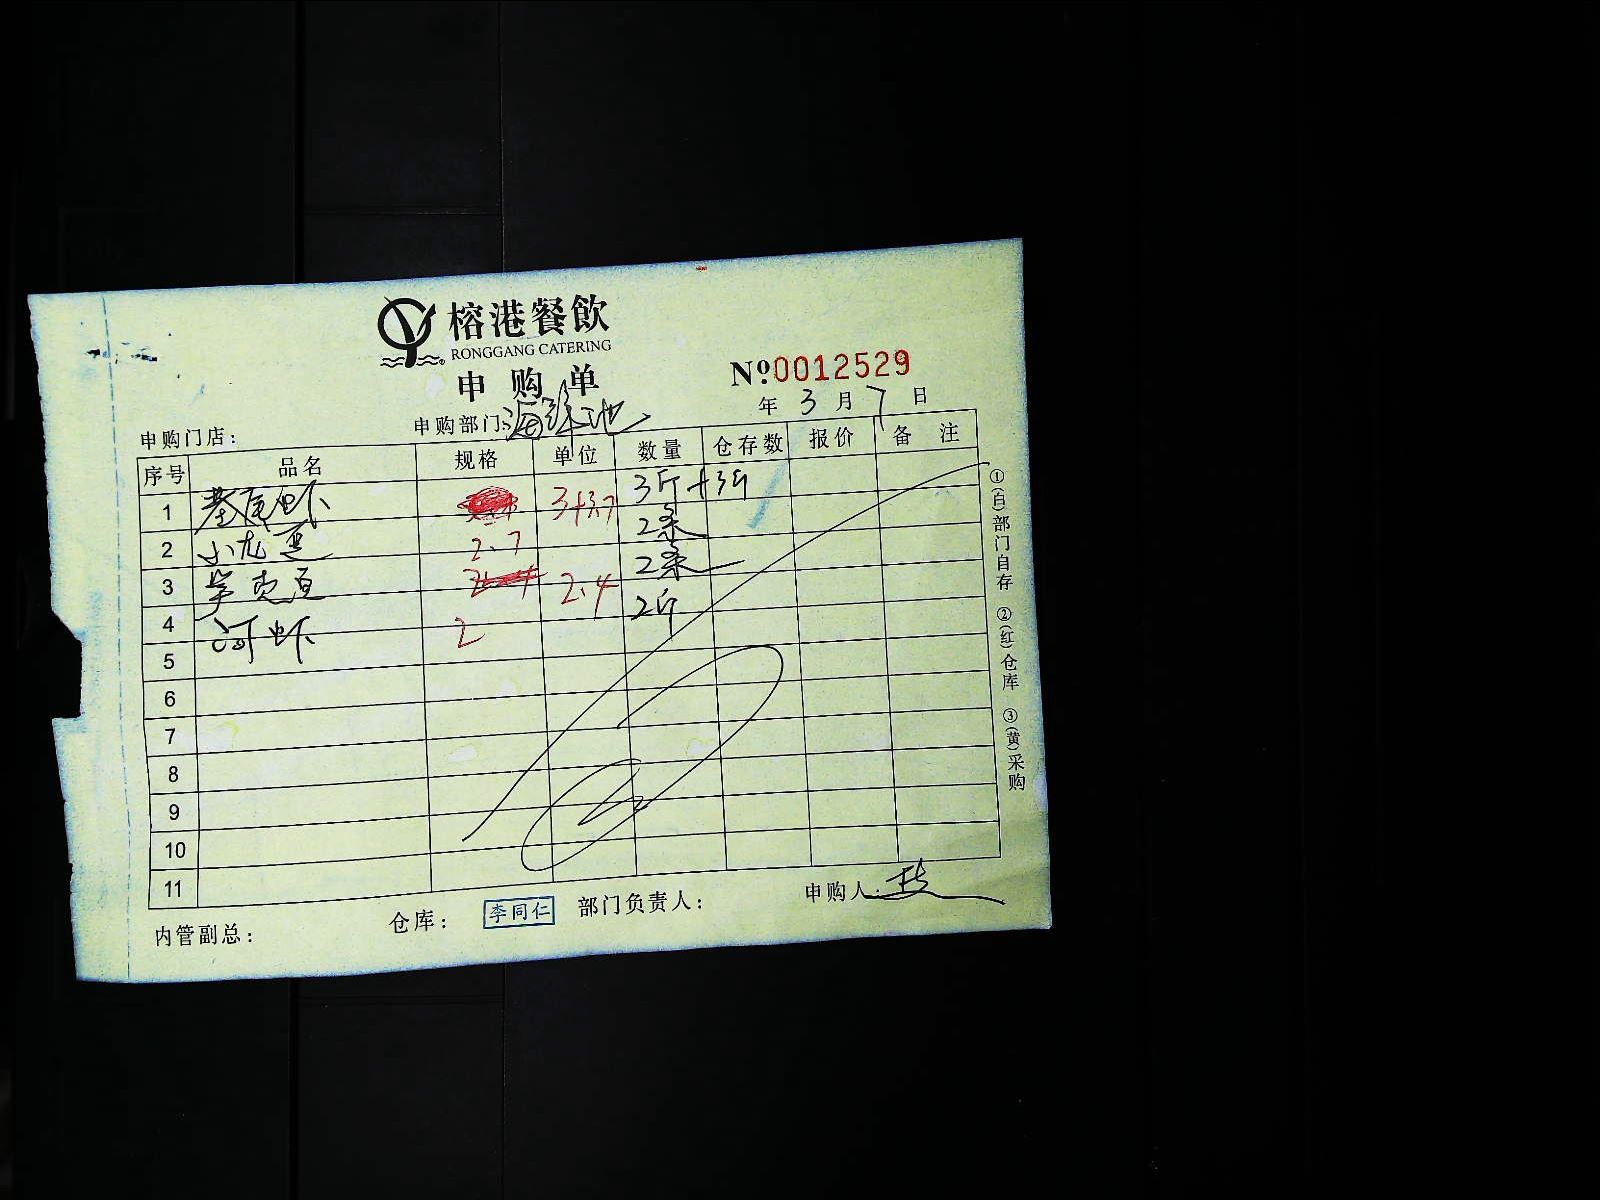 榕港餐飲
RONGGANG CATERING
申购单
№0012529
年 3 月 7 日
申购门店： 申购部门：海珍池
序号 品名 规格 单位 数量 仓存数 报价 备注
1 基尾虾 3+3.7 3斤+3斤
2 小龙趸 2.7 2条
3 2.4 2.4 2条
4 河虾 2 2斤
5
6
7
8
9
10
11
内管副总： 仓库： 李同仁 部门负责人： 申购人：
①(白)部门自存 ②(红)仓库 ③(黄)采购